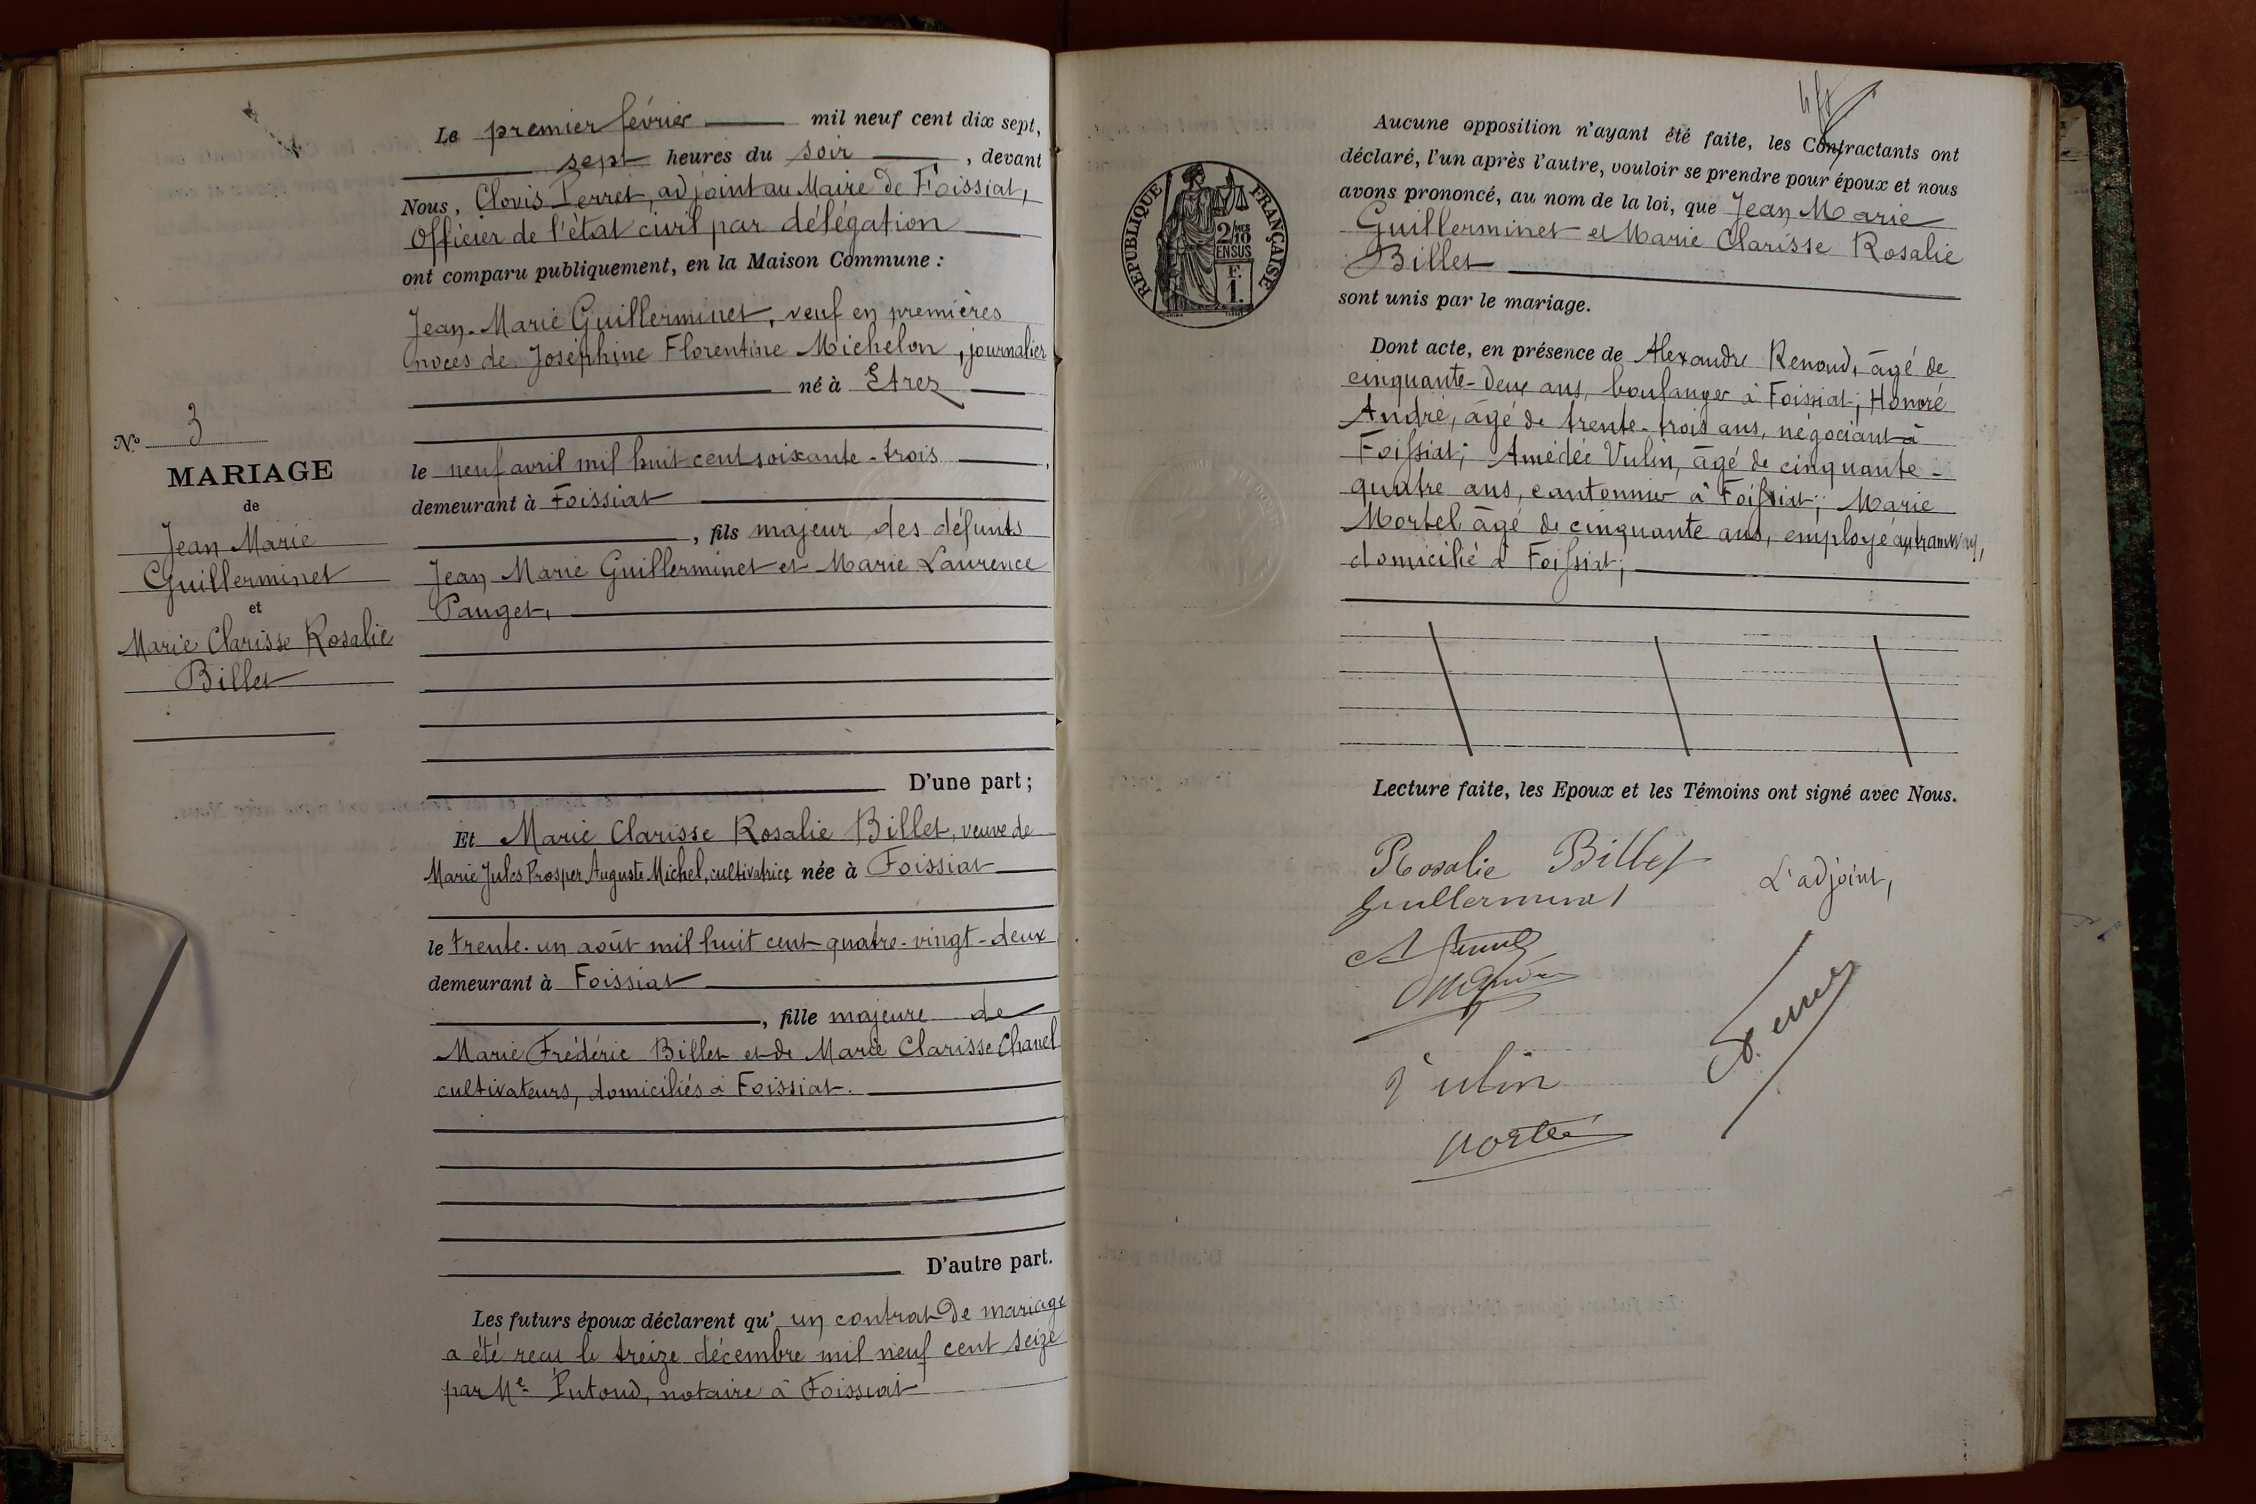 N° 3
MARIAGE
de
Jean Marie
Guillerminet
et
Marie Clarisse Rosalie
Billet
Le premier février mil neuf cent dix sept,
sept heures du soir, devant
Nous, Clovis Perret, adjoint au Maire de Foissiat,
Officier de l'état civil par délégation
ont comparu publiquement, en la Maison Commune :
Jean-Marie Guillerminet, veuf en premières
noces de Joséphine Florentine Michelon, journalier
né à Etrez
le neuf avril mil huit cent soixante-trois,
demeurant à Foissiat
, fils majeur des défunts
Jean Marie Guillerminet et Marie Laurence
Pauget,
D'une part ;
Et Marie Clarisse Rosalie Billet, veuve de
Marie Jules Prosper Auguste Michel, cultivatrice née à Foissiat
le trente-un août mil huit cent quatre-vingt-deux
demeurant à Foissiat
, fille majeure de
Marie Frédéric Billet et de Marie Clarisse Chanel
cultivateurs, domiciliés à Foissiat.
D'autre part.
Les futurs époux déclarent qu'un contrat de mariage
a été reçu le treize décembre mil neuf cent seize
par Me Putoud, notaire à Foissiat
RÉPUBLIQUE FRANÇAISE
2/10
EN SUS
F.
1.
Aucune opposition n'ayant été faite, les Contractants ont
déclaré, l'un après l'autre, vouloir se prendre pour époux et nous
avons prononcé, au nom de la loi, que Jean Marie
Guillerminet et Marie Clarisse Rosalie
Billet
sont unis par le mariage.
Dont acte, en présence de Alexandre Renoud, âgé de
cinquante-deux ans, boulanger à Foissiat ; Honoré
André, âgé de trente-trois ans, négociant à
Foissiat ; Amédée Vulin, âgé de cinquante-
quatre ans, cantonnier à Foissiat ; Marie
Mortel âgé de cinquante ans, employé au tramway,
domicilié à Foissiat ;
Lecture faite, les Epoux et les Témoins ont signé avec Nous.
Rosalie Billet
L'adjoint,
Guillerminet
Vulin
C. Perret